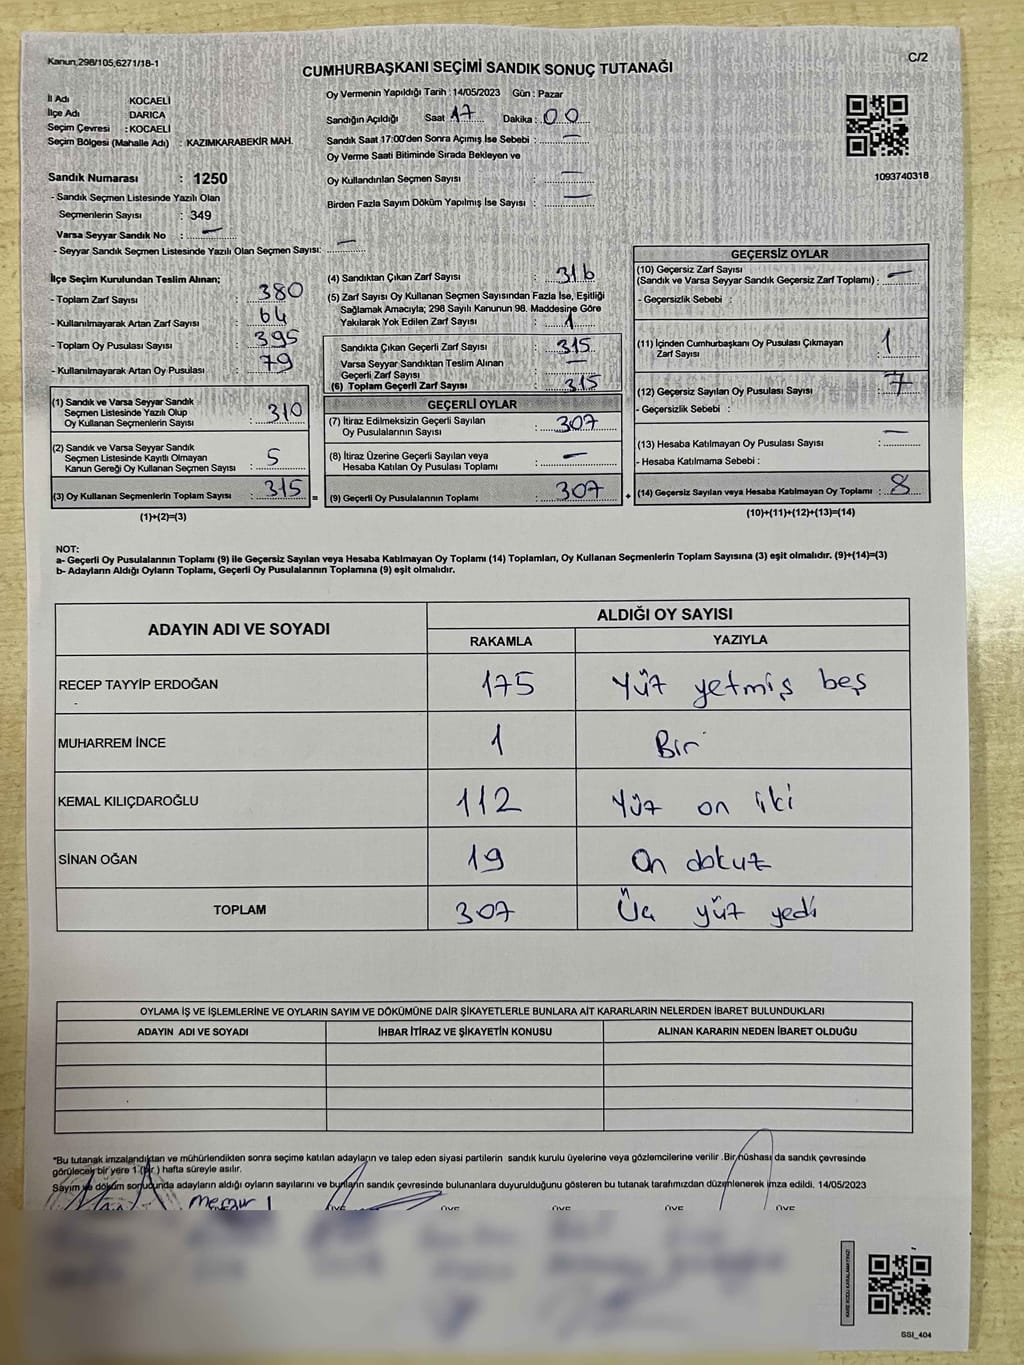 Kanun,298/105,6271/18-1
C/2
CUMHURBAŞKANI SEÇİMİ SANDIK SONUÇ TUTANAĞI
İl Adı KOCAELİ
İlçe Adı DARICA
Seçim Çevresi : KOCAELİ
Seçim Bölgesi (Mahalle Adı) : KAZIMKARABEKİR MAH.
Sandık Numarası : 1250
- Sandık Seçmen Listesinde Yazılı Olan
Seçmenlerin Sayısı : 349
Varsa Seyyar Sandık No : —
- Seyyar Sandık Seçmen Listesinde Yazılı Olan Seçmen Sayısı: —
Oy Vermenin Yapıldığı Tarih : 14/05/2023 Gün : Pazar
Sandığın Açıldığı Saat 17 Dakika : 00
Sandık Saat 17:00'den Sonra Açımış İse Sebebi : —
Oy Verme Saati Bitiminde Sırada Bekleyen ve
Oy Kullandırılan Seçmen Sayısı : —
Birden Fazla Sayım Döküm Yapılmış İse Sayısı : —
1093740318
İlçe Seçim Kurulundan Teslim Alınan;
- Toplam Zarf Sayısı : 380
- Kullanılmayarak Artan Zarf Sayısı : 64
- Toplam Oy Pusulası Sayısı : 395
- Kullanılmayarak Artan Oy Pusulası : 79
(1) Sandık ve Varsa Seyyar Sandık
Seçmen Listesinde Yazılı Olup
Oy Kullanan Seçmenlerin Sayısı : 310
(2) Sandık ve Varsa Seyyar Sandık
Seçmen Listesinde Kayıtlı Olmayan
Kanun Gereği Oy Kullanan Seçmen Sayısı : 5
(3) Oy Kullanan Seçmenlerin Toplam Sayısı : 315 =
(1)+(2)=(3)
(4) Sandıktan Çıkan Zarf Sayısı : 316
(5) Zarf Sayısı Oy Kullanan Seçmen Sayısından Fazla İse, Eşitliği
Sağlamak Amacıyla; 298 Sayılı Kanunun 98. Maddesine Göre
Yakılarak Yok Edilen Zarf Sayısı : 1
Sandıkta Çıkan Geçerli Zarf Sayısı : 315
Varsa Seyyar Sandıktan Teslim Alınan
Geçerli Zarf Sayısı : —
(6) Toplam Geçerli Zarf Sayısı : 315
GEÇERLİ OYLAR
(7) İtiraz Edilmeksizin Geçerli Sayılan
Oy Pusulalarının Sayısı : 307
(8) İtiraz Üzerine Geçerli Sayılan veya
Hesaba Katılan Oy Pusulası Toplamı : —
(9) Geçerli Oy Pusulalarının Toplamı : 307 +
GEÇERSİZ OYLAR
(10) Geçersiz Zarf Sayısı
(Sandık ve Varsa Seyyar Sandık Geçersiz Zarf Toplamı) : —
- Geçersizlik Sebebi :
(11) İçinden Cumhurbaşkanı Oy Pusulası Çıkmayan
Zarf Sayısı : 1
(12) Geçersiz Sayılan Oy Pusulası Sayısı : 7
- Geçersizlik Sebebi :
(13) Hesaba Katılmayan Oy Pusulası Sayısı : —
- Hesaba Katılmama Sebebi :
(14) Geçersiz Sayılan veya Hesaba Katılmayan Oy Toplamı : 8
(10)+(11)+(12)+(13)=(14)
NOT:
a- Geçerli Oy Pusulalarının Toplamı (9) ile Geçersiz Sayılan veya Hesaba Katılmayan Oy Toplamı (14) Toplamları, Oy Kullanan Seçmenlerin Toplam Sayısına (3) eşit olmalıdır. (9)+(14)=(3)
b- Adayların Aldığı Oyların Toplamı, Geçerli Oy Pusulalarının Toplamına (9) eşit olmalıdır.
ADAYIN ADI VE SOYADI
ALDIĞI OY SAYISI
RAKAMLA YAZIYLA
RECEP TAYYİP ERDOĞAN 175 Yüz yetmiş beş
MUHARREM İNCE 1 Bir
KEMAL KILIÇDAROĞLU 112 Yüz on iki
SİNAN OĞAN 19 On dokuz
TOPLAM 307 Üç yüz yedi
OYLAMA İŞ VE İŞLEMLERİNE VE OYLARIN SAYIM VE DÖKÜMÜNE DAİR ŞİKAYETLERLE BUNLARA AİT KARARLARIN NELERDEN İBARET BULUNDUKLARI
ADAYIN ADI VE SOYADI İHBAR İTİRAZ VE ŞİKAYETİN KONUSU ALINAN KARARIN NEDEN İBARET OLDUĞU
*Bu tutanak imzalandıktan ve mühürlendikten sonra seçime katılan adayların ve talep eden siyasi partilerin sandık kurulu üyelerine veya gözlemcilerine verilir .Bir nüshası da sandık çevresinde
görülecek bir yere 1 (bir ) hafta süreyle asılır.
Sayım ve döküm sonucunda adayların aldığı oyların sayılarını ve bunların sandık çevresinde bulunanlara duyurulduğunu gösteren bu tutanak tarafımızdan düzenlenerek imza edildi. 14/05/2023
ÜYE ÜYE ÜYE ÜYE ÜYE
SSI_404